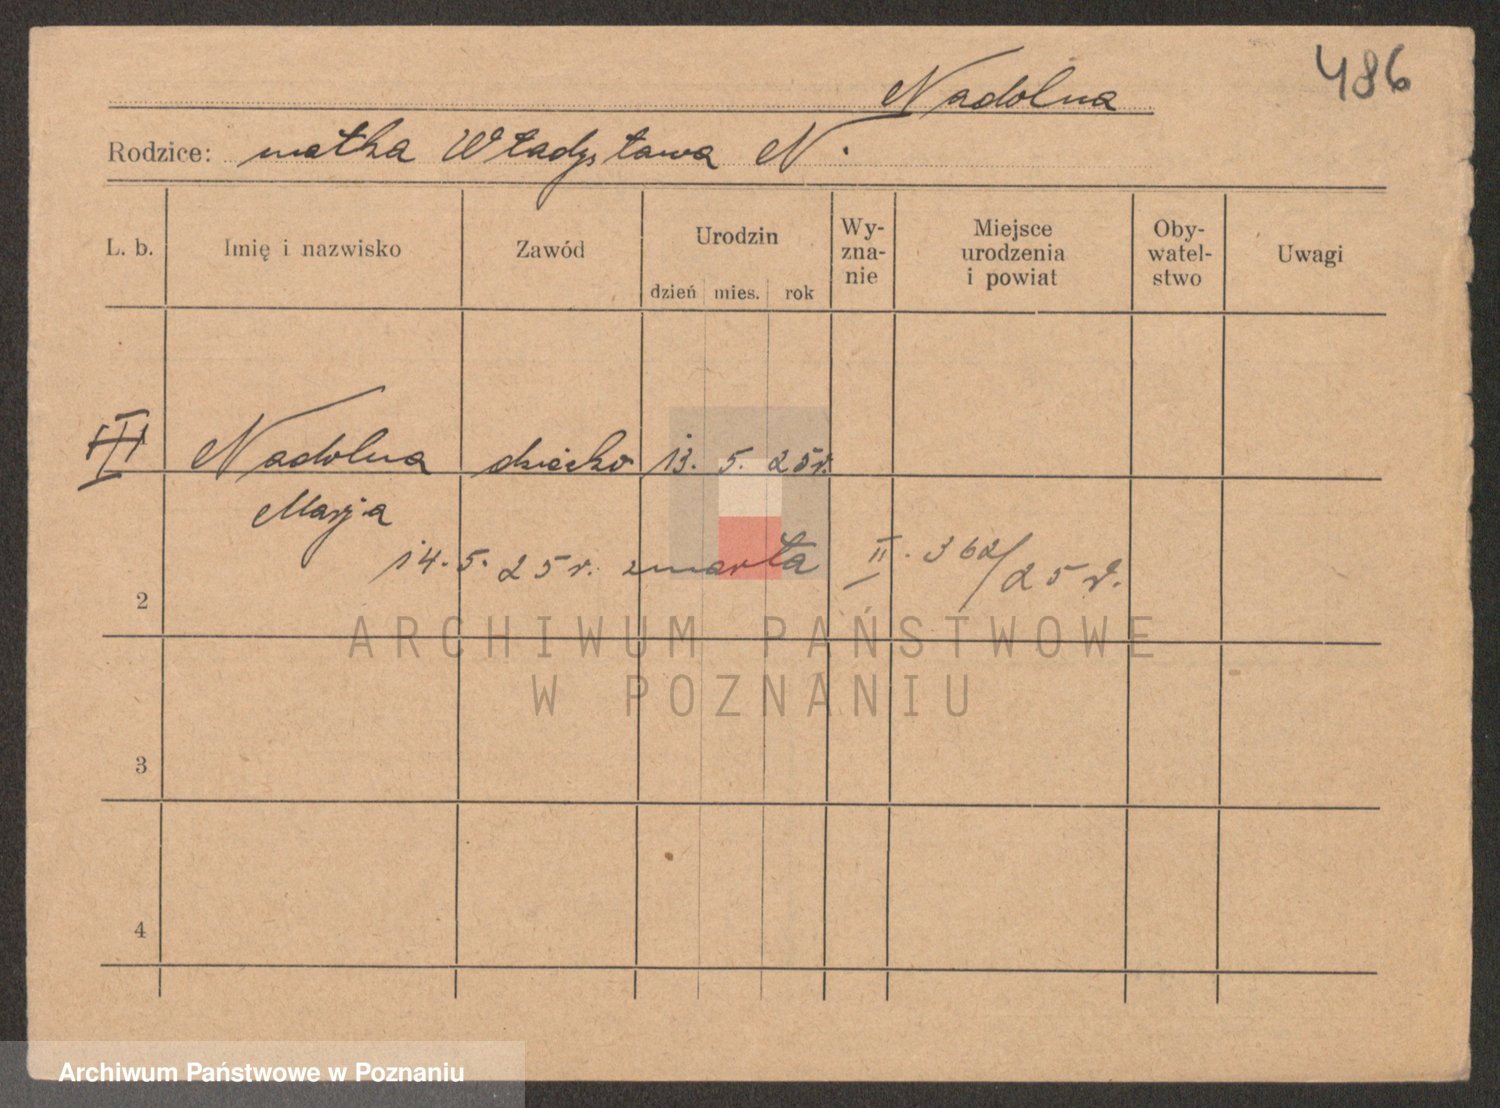 486
Nadolna
Rodzice: matka Władysława N.
L. b. Imię i nazwisko Zawód Urodzin Wy-zna-nie Miejsce urodzenia i powiat Oby-watel-stwo Uwagi
dzień mies. rok
Nadolna dziecko 13. 5. 25r.
Marja
14. 5. 25 r. zmarła II. 362/25 r.
2
ARCHIWUM PAŃSTWOWE
W POZNANIU
3
4
Archiwum Państwowe w Poznaniu